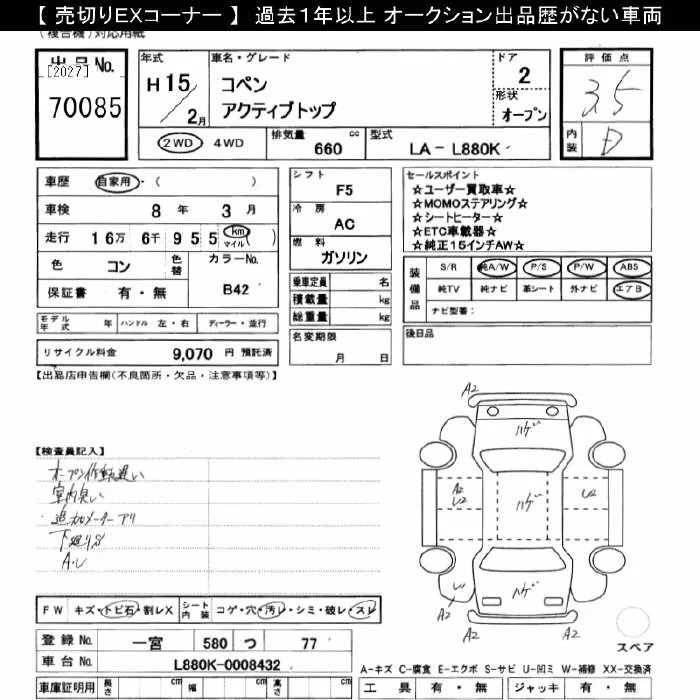 【 売切りEXコーナー 】 過去1年以上 オークション出品歴がない車両
(複合機)対応用紙
出品No.
[2027]
70085
年式
H 15/2月
車名・グレード
コペン
アクティブトップ
ドア
2
形状
オープン
評価点
3.5
内装
D
2WD 4WD
排気量 660 cc
型式 LA-L880K
車歴 自家用・( )
車検 8年 3月
走行 16万 6千 955 km マイル ( )
色 コン 色替 カラーNo. B42
保証書 有・無
モデル年式 年 ハンドル 左・右 ディーラー・並行
リサイクル料金 9,070 円 預託済
シフト F5
冷房 AC
燃料 ガソリン
乗車定員 名
積載量 kg
総重量 kg
名変期限
月 日
セールスポイント
☆ユーザー買取車☆
☆MOMOステアリング☆
☆シートヒーター☆
☆ETC車載器☆
☆純正15インチAW☆
装備品
S/R 純A/W P/S P/W ABS
純TV 純ナビ 革シート 外ナビ エアB
ナビ型番:
後日品
【出品店申告欄(不良箇所・欠品・注意事項等)】
【検査員記入】
オープン作動遅い
室内臭い
追加メーターアリ
下廻りS
A・U
A2
ハゲ
A2
U2
ハゲ
U2
ハゲ
U1
A2
A2
スペア
FW キズ・トビ石・割レX シート内装 コゲ・穴・汚レ・シミ・破レ・スレ
登録No. 一宮 580 つ 77
車台No. L880K-0008432
A-キズ C-腐食 E-エクボ S-サビ U-凹ミ W-補修 XX-交換済
車庫証明用 長さ cm 幅 cm 高さ cm
工具 有・無 ジャッキ 有・無